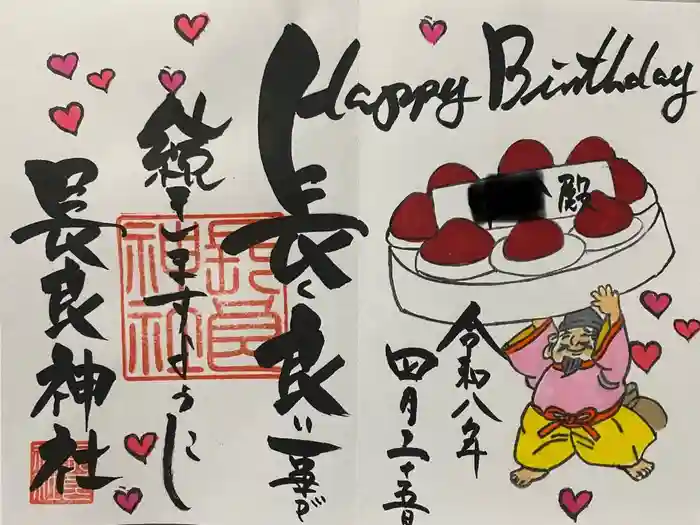 Happy Birthday
殿
令和八年
四月二十五日
長く良い事が
続きますように
長良神社
長良
神社